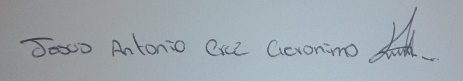 Antonio Cruz Geronimo